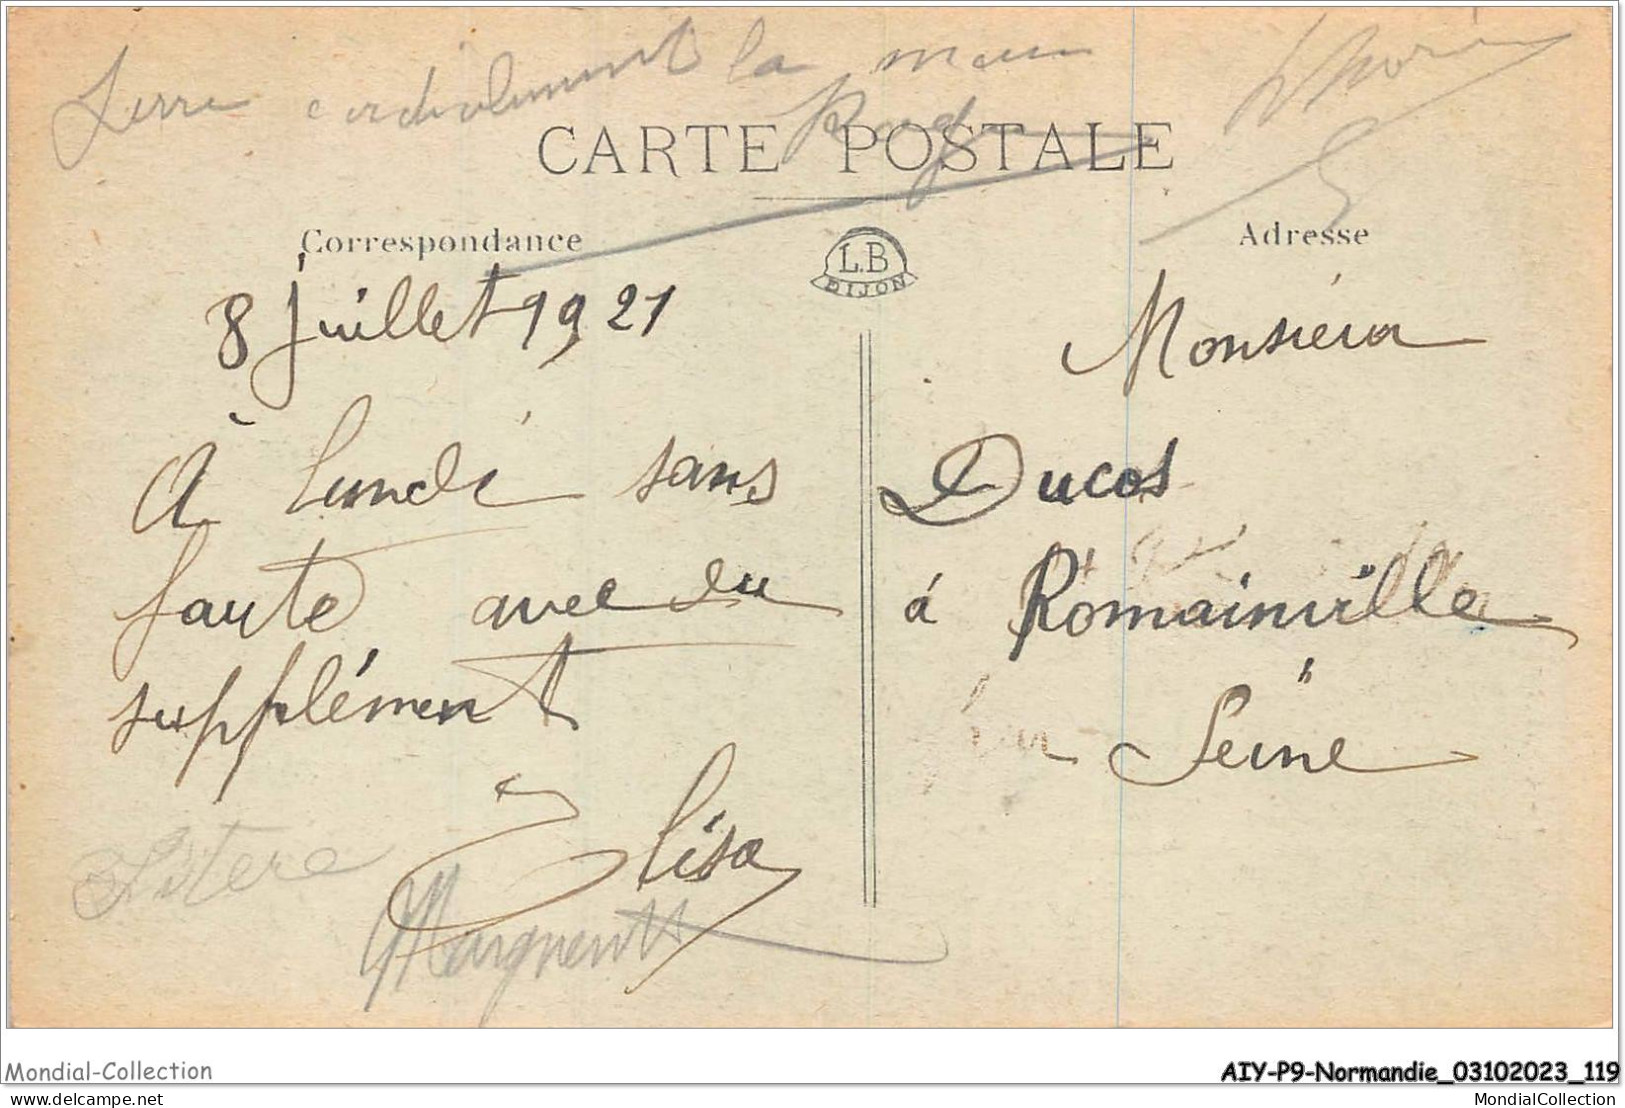 Serre cordialement la main
CARTE POSTALE
Correspondance
Adresse
L.B
DIJON
8 juillet 1921
à lundi sans
faute avec du
supplément
Elisa
Marguerite
Monsieur
Ducos
à Romainville
Seine
Mondial-Collection
AIY-P9-Normandie_03102023_119
delcampe.net
MondialCollection